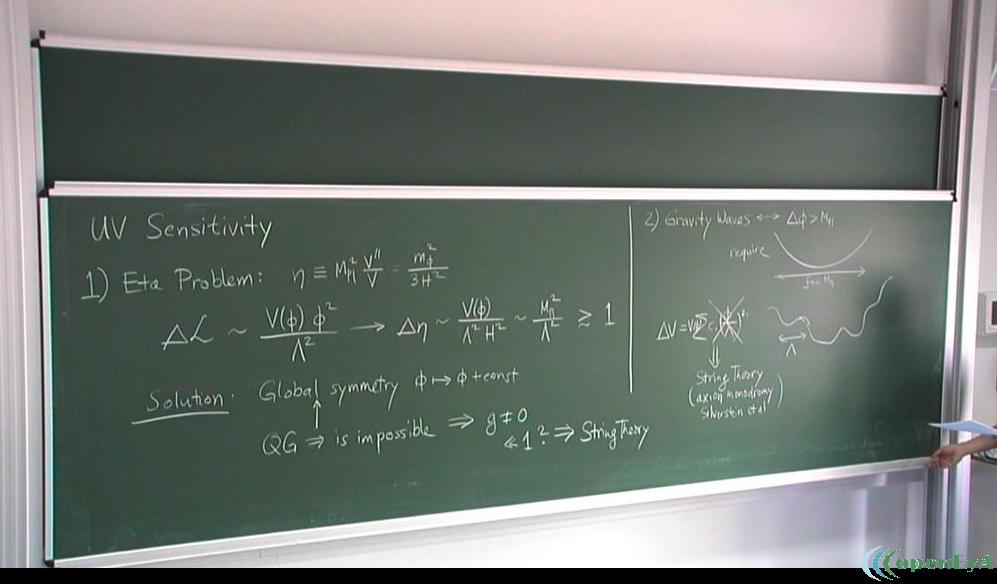 UV Sensitivity
1) Eta Problem: η ≡ M_Pl² V''/V = m_ϕ²/3H²
Δℒ ~ V(ϕ) ϕ²/Λ² → Δη ~ V(ϕ)/Λ² H² ~ M_Pl²/Λ² ≳ 1
Solution: Global symmetry ϕ ↦ ϕ + const
↑
QG ⇒ is impossible ⇒ g ≠ 0
≪ 1 ? ⇒ String Theory
2) Gravity Waves ↔ Δϕ > M_Pl
require
few M_Pl
ΔV = V
Λ
⇓
String Theory
(axion monodromy
Silverstein et al)
openEyA